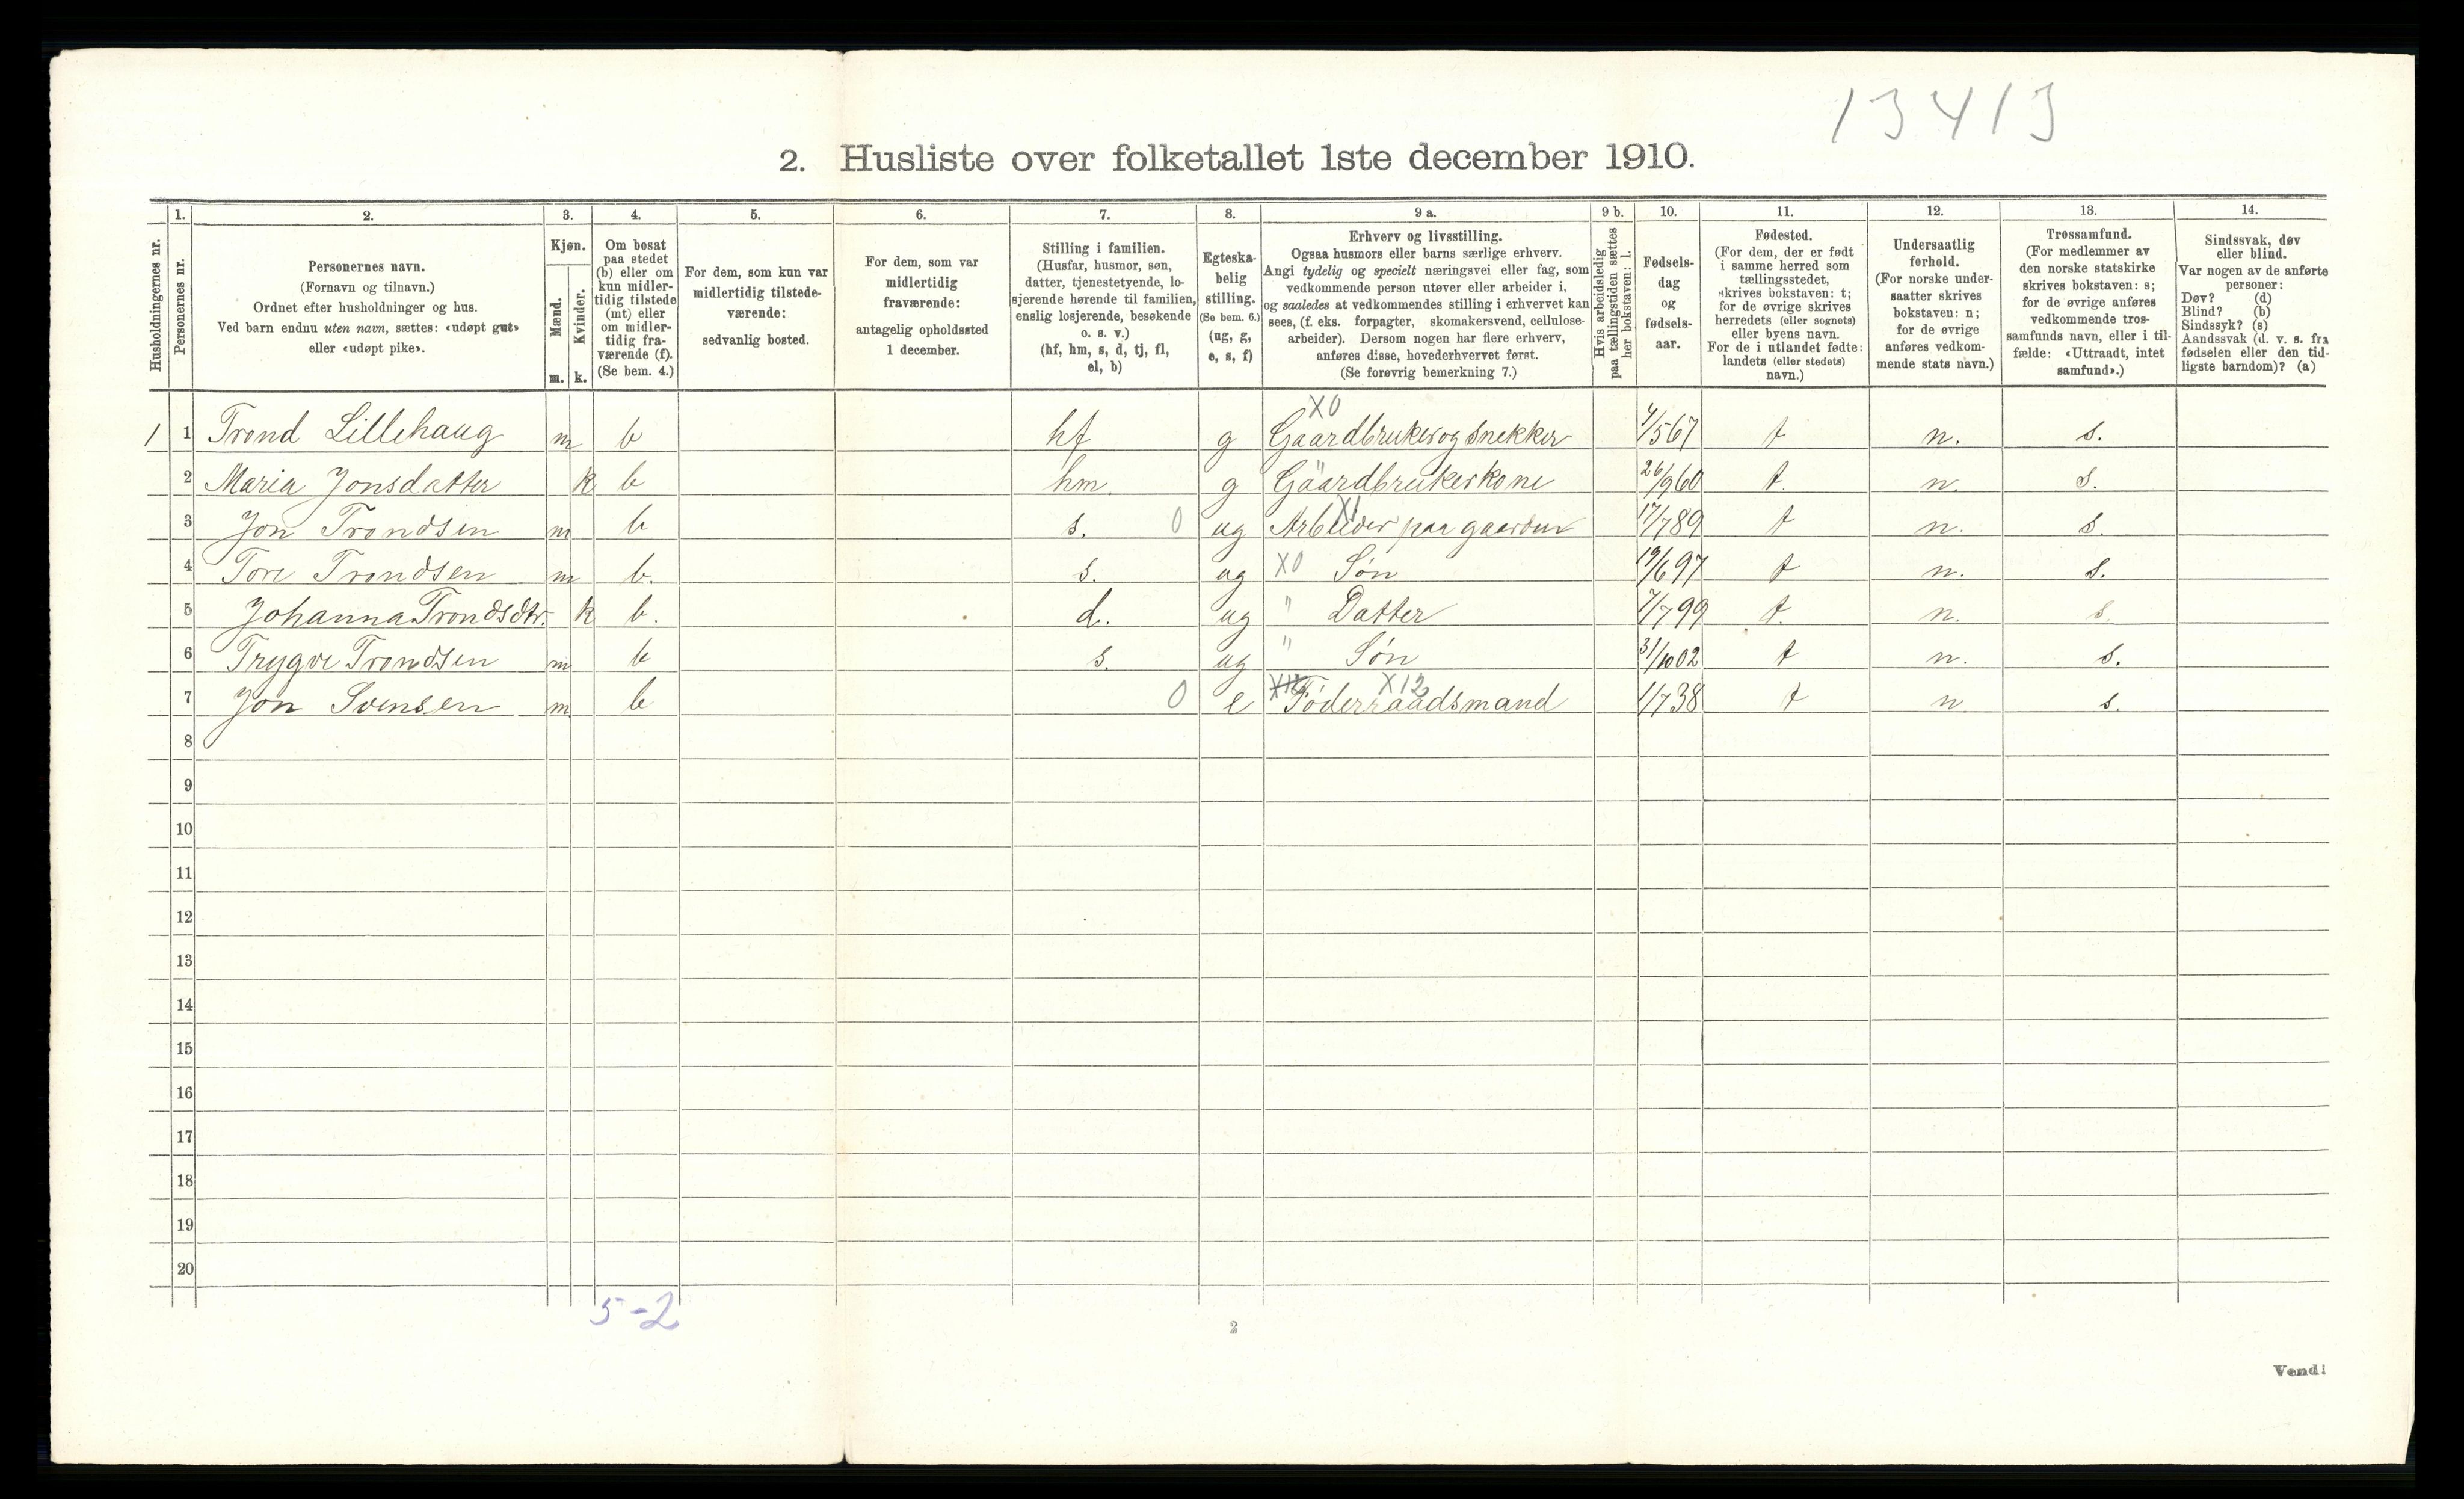 13413
2. Husliste over folketallet 1ste december 1910.
Husholdningernes nr.
1.
Personernes nr.
2.
Personernes navn.
(Fornavn og tilnavn.)
Ordnet efter husholdninger og hus.
Ved barn endnu uten navn, sættes: «udøpt gut»
eller «udøpt pike».
3.
Kjøn.
Mænd.
Kvinder.
m. k.
4.
Om bosat
paa stedet
(b) eller om
kun midler-
tidig tilstede
(mt) eller
om midler-
tidig fra-
værende (f).
(Se bem. 4.)
5.
For dem, som kun var
midlertidig tilstede-
værende:
sedvanlig bosted.
6.
For dem, som var
midlertidig
fraværende:
antagelig opholdssted
1 december.
7.
Stilling i familien.
(Husfar, husmor, søn,
datter, tjenestetyende, lo-
sjerende hørende til familien,
enslig losjerende, besøkende
o. s. v.)
(hf, hm, s, d, tj, fl,
el, b)
8.
Egteska-
belig
stilling.
(Se bem. 6.)
(ug, g,
e, s, f)
9 a.
Erhverv og livsstilling.
Ogsaa husmors eller barns særlige erhverv.
Angi tydelig og specielt næringsvei eller fag, som
vedkommende person utøver eller arbeider i,
og saaledes at vedkommendes stilling i erhvervet kan
sees, (f. eks. forpagter, skomakersvend, cellulose-
arbeider). Dersom nogen har flere erhverv,
anføres disse, hovederhvervet først.
(Se forøvrig bemerkning 7.)
9 b.
Hvis arbeidsledig
paa tællingstiden sættes
her bokstaven: l.
10.
Fødsels-
dag
og
fødsels-
aar.
11.
Fødested.
(For dem, der er født
i samme herred som
tællingsstedet,
skrives bokstaven: t;
for de øvrige skrives
herredets (eller sognets)
eller byens navn.
For de i utlandet fødte:
landets (eller stedets)
navn.)
12.
Undersaatlig
forhold.
(For norske under-
saatter skrives
bokstaven: n;
for de øvrige
anføres vedkom-
mende stats navn.)
13.
Trossamfund.
(For medlemmer av
den norske statskirke
skrives bokstaven: s;
for de øvrige anføres
vedkommende tros-
samfunds navn, eller i til-
fælde: «Uttraadt, intet
samfund».)
14.
Sindssvak, døv
eller blind.
Var nogen av de anførte
personer:
Døv? (d)
Blind? (b)
Sindssyk? (s)
Aandssvak (d. v. s. fra
fødselen eller den tid-
ligste barndom)? (a)
X0
1 1 Trond Lillehaug m b hf g Gaardbruker og Snekker 4/5 67 t n. s.
2 Maria Jonsdatter k b hm. g " Gaardbrukerkone 26/9 60 t. n. s.
X1
3 Jon Trondsen m b s. 0 ug Arbeider paa gaarden 17/7 89 t n. s.
4 Tore Trondsen m b. s. ug X0 Søn 19/6 97 t n. s.
5 Johanna Trondsdtr. k b. d. ug " Datter 7/7 99 t. n. s.
6 Trygve Trondsen m b s. ug " Søn 31/10 02 t n. s.
X12 X12
7 Jon Svensen m b 0 e Føderraadsmand 1/7 38 t n s.
8
9
10
11
12
13
14
15
16
17
18
19
20
5-2
2
Vend!